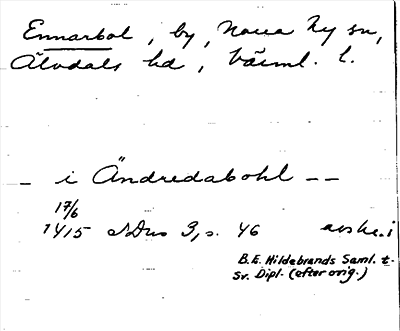 Ennarbol, by, Norra Ny sn,
Älvdals hd, Värml. l.
– i Ändredabohl – –
17/6
1415 SDns 3, s. 46 avskr. i
B.E. Hildebrands Saml. t.
Sv. Dipl. (efter orig.)